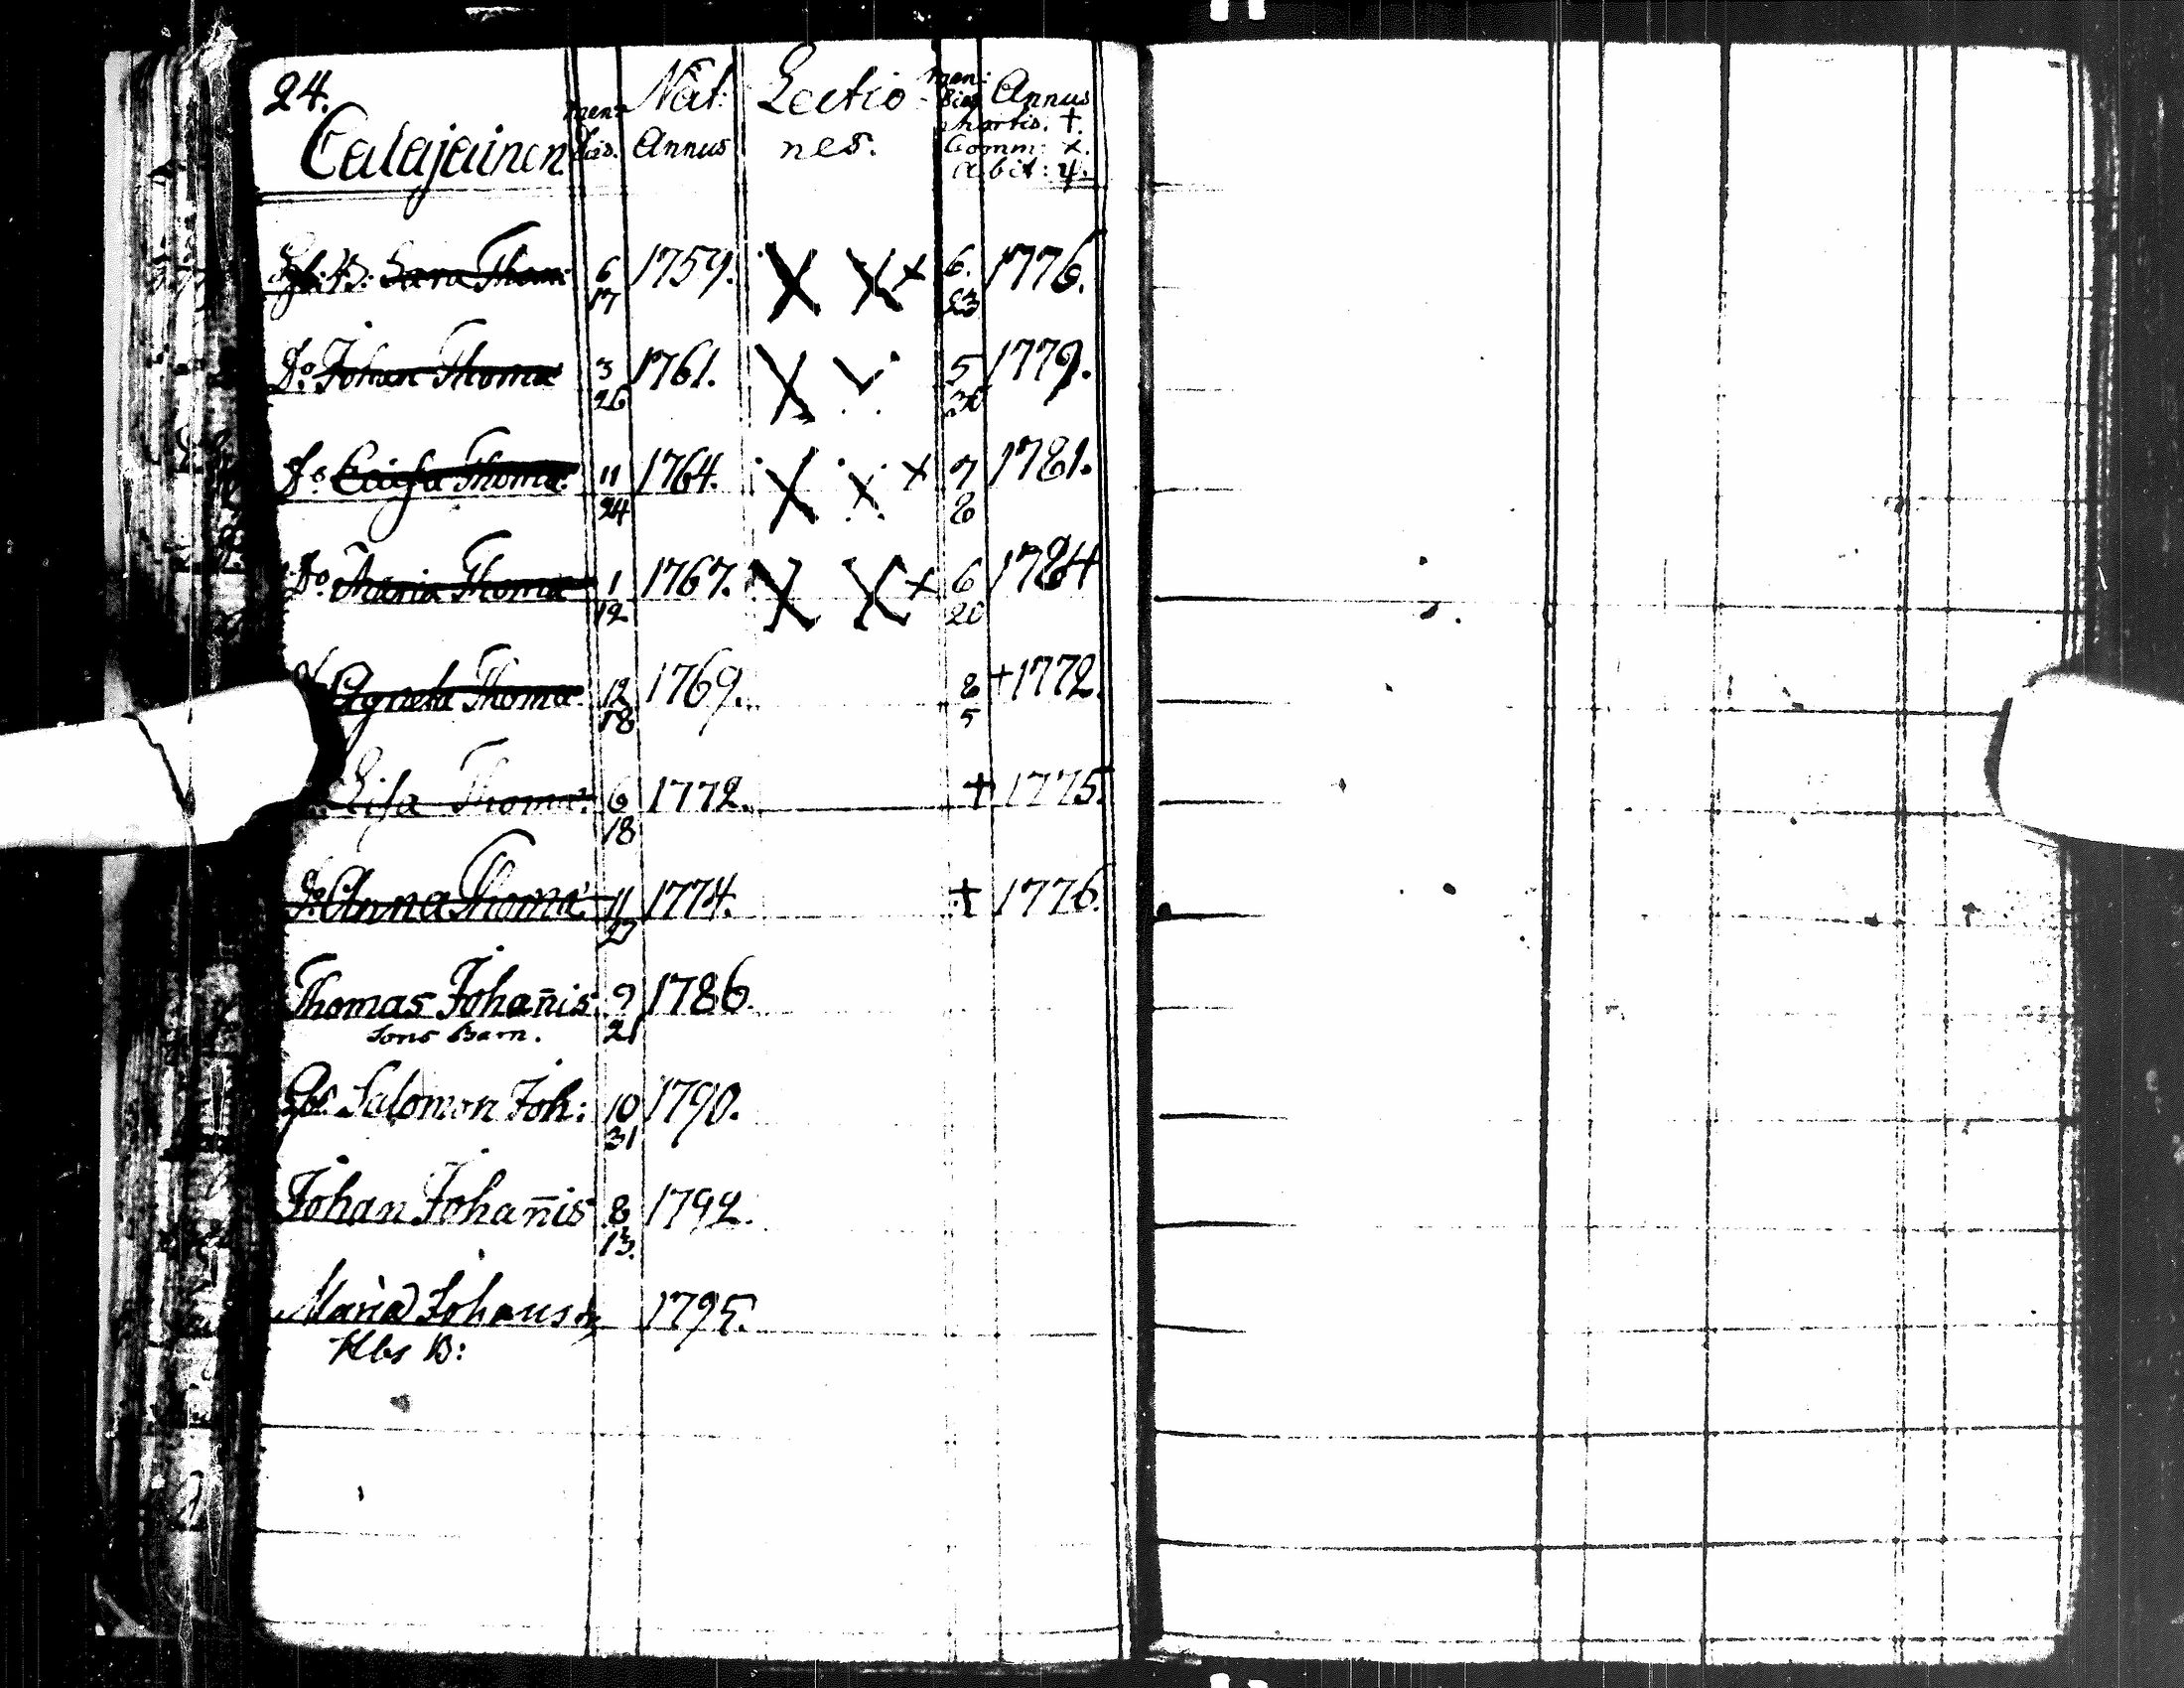 24.
Calajainen
men:
dies.
Nat:
Annus
Lectio
nes.
men:
dies
Annus
Mortis. †.
Comm: x.
Abit: 4.
B: Sara Thom: 6 17 1759. X X x 6. 23 1776.
Do Johan Thomæ 3 26 1761. X 5 30 1779.
Do Caisa Thomæ 11 24 1764. X x x 7 8 1781.
Do Maria Thomæ 1 12 1767. X X x 6 20 1784
Agneta Thomæ 12 18 1769. 8 5 †1772.
Lisa Thomæ 6 18 1772. † 1775.
Do Anna Thomæ 11 27 1774. † 1776.
Thomas Johan̄is 9 21 1786.
Sons Barn.
Salomon Joh: 10 31 1790.
Johan Johan̄is 8 13. 1792.
Maria Johans dr 1795.
Hbs B: